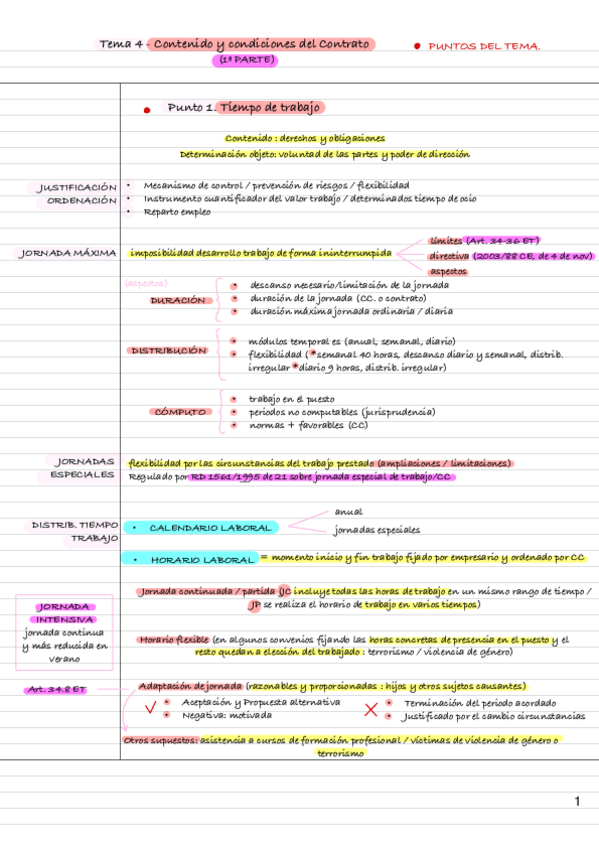 Tema 4 - Contenido y condiciones del Contrato
(1ª PARTE)
• PUNTOS DEL TEMA.
• Punto 1. Tiempo de trabajo
Contenido : derechos y obligaciones
Determinación objeto: voluntad de las partes y poder de dirección
JUSTIFICACIÓN
ORDENACIÓN
• Mecanismo de control / prevención de riesgos / flexibilidad
• Instrumento cuantificador del valor trabajo / determinados tiempo de ocio
• Reparto empleo
JORNADA MÁXIMA
imposibilidad desarrollo trabajo de forma ininterrumpida
límites (Art. 34-36 ET)
directiva (2003/88 CE, de 4 de nov)
aspectos
(aspectos)
DURACIÓN
• descanso necesario/limitación de la jornada
• duración de la jornada (CC. o contrato)
• duración máxima jornada ordinaria / diaria
DISTRIBUCIÓN
• módulos temporal es (anual, semanal, diario)
• flexibilidad ( *semanal 40 horas, descanso diario y semanal, distrib.
irregular *diario 9 horas, distrib. irregular)
CÓMPUTO
• trabajo en el puesto
• periodos no computables (jurisprudencia)
• normas + favorables (CC)
JORNADAS
ESPECIALES
flexibilidad por las circunstancias del trabajo prestado (ampliaciones / limitaciones)
Regulado por RD 1561/1995 de 21 sobre jornada especial de trabajo/CC
DISTRIB. TIEMPO
TRABAJO
• CALENDARIO LABORAL
anual
jornadas especiales
• HORARIO LABORAL = momento inicio y fin trabajo fijado por empresario y ordenado por CC
Jornada continuada / partida (JC incluye todas las horas de trabajo en un mismo rango de tiempo /
JP se realiza el horario de trabajo en varios tiempos)
JORNADA
INTENSIVA
jornada continua
y más reducida en
verano
Horario flexible (en algunos convenios fijando las horas concretas de presencia en el puesto y el
resto quedan a elección del trabajado : terrorismo / violencia de género)
Art. 34.8 ET
Adaptación de jornada (razonables y proporcionadas : hijos y otros sujetos causantes)
• Aceptación y Propuesta alternativa
• Negativa: motivada
• Terminación del periodo acordado
• Justificado por el cambio circunstancias
Otros supuestos: asistencia a cursos de formación profesional / víctimas de violencia de género o
terrorismo
1